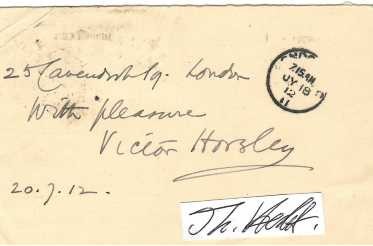 25 Cavendish Sq. London
LONDON
7.15 AM
JY 18
12
11
With pleasure
Victor Horsley
20.7.12.
Th.